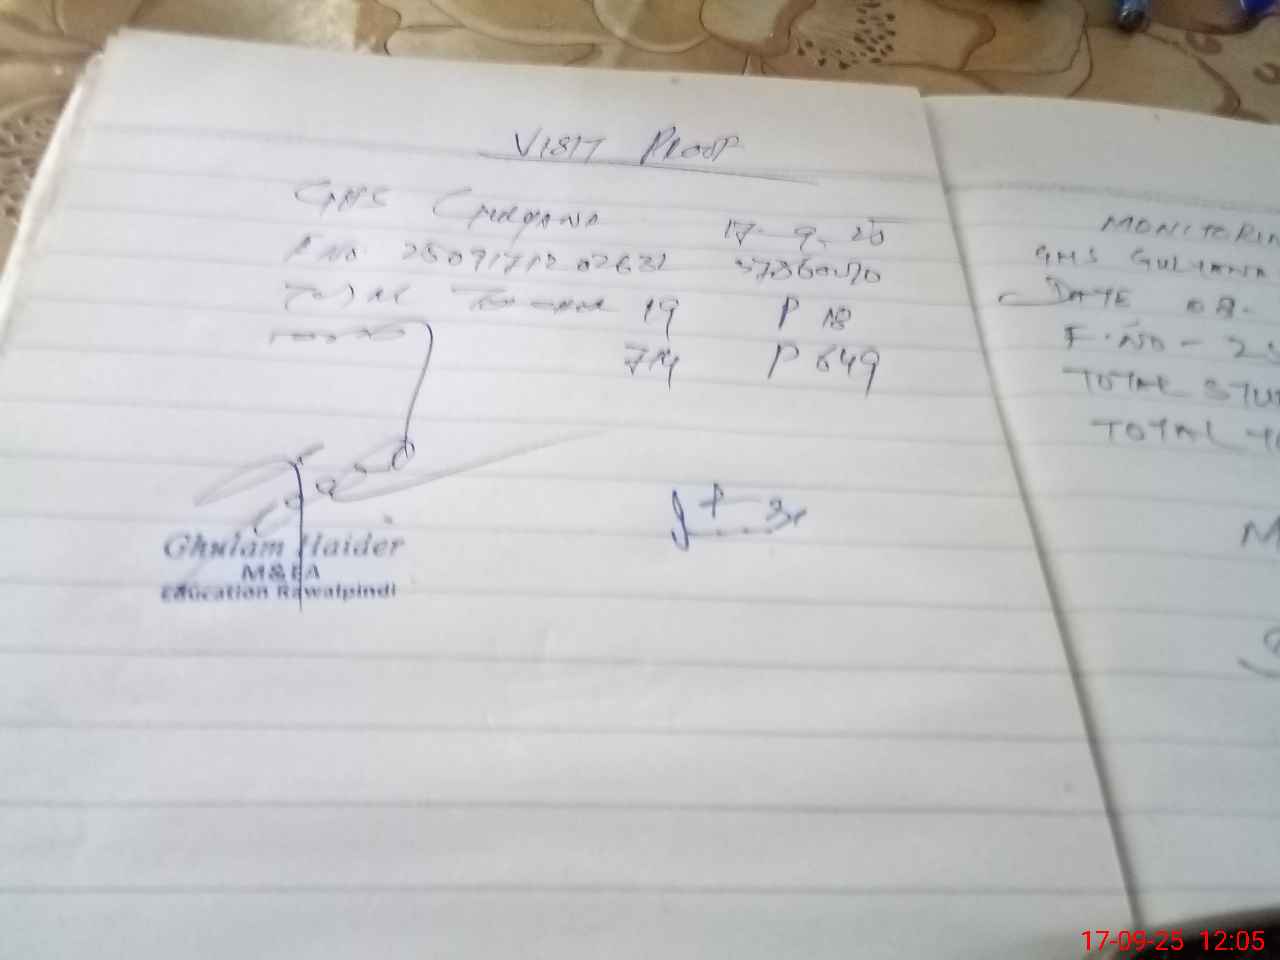 VISIT PROOF
GHS GULYANA 17-9-25
F.NO. 37360290
Total 19 P 18
714 P 649
Ghulam Haider
M&EA
Education Rawalpindi
MONITORIN
GHS GULYANA
DATE 08-
F.NO - 25
TOTAL STU
TOTAL
17-09-25 12:05